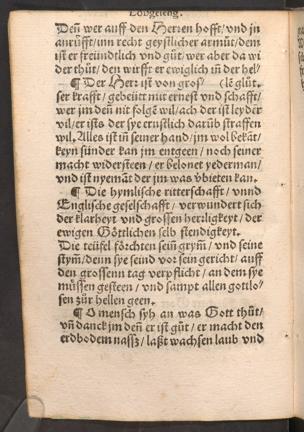 Lobgeseng.
Deñ wer auff den Herren hofft/ vnd jn
anrüfft/ inn recht geystlicher armůt/ dem
ist er freündtlich vnd gůt/ wer aber da wi
der thůt/ den wirfft er ewiglich iñ der hel/
¶ Der Herr ist von gros/ (lē glůt.
ser krafft/ gebeütt mit ernest vnd schafft/
wer jm deñ nit folgē wil/ ach der ist leyder
vil/ er ists der sye ernstlich darüb straffen
wil. Alles ist iñ seiner hand/ jm wol bekāt/
keyn sünder kan jm entgeen/ noch seiner
macht widersteen/ er belonet yederman/
vnd ist nyemāt der jm was v̈bieten kan.
¶ Die hymlische ritterschafft/ vnnd
Englische geselschafft/ verwundert sich
der klarheyt vnd grossen herrligkeyt/ der
ewigen Göttlichen selbstendigkeyt.
Die teüfel förchten sein grym̃/ vnd seine
stym̃/ denn sye seind vor sein gericht/ auff
den grossenn tag verpflicht/ an dem sye
müssen gesteen/ vnd sampt allen gottlo/
sen zůr hellen geen.
¶ O mensch syh an was Gott thůt/
vñ danck jm deñ er ist gůt/ er macht den
erdbodem nassz/ laßt wachsen laub vnd